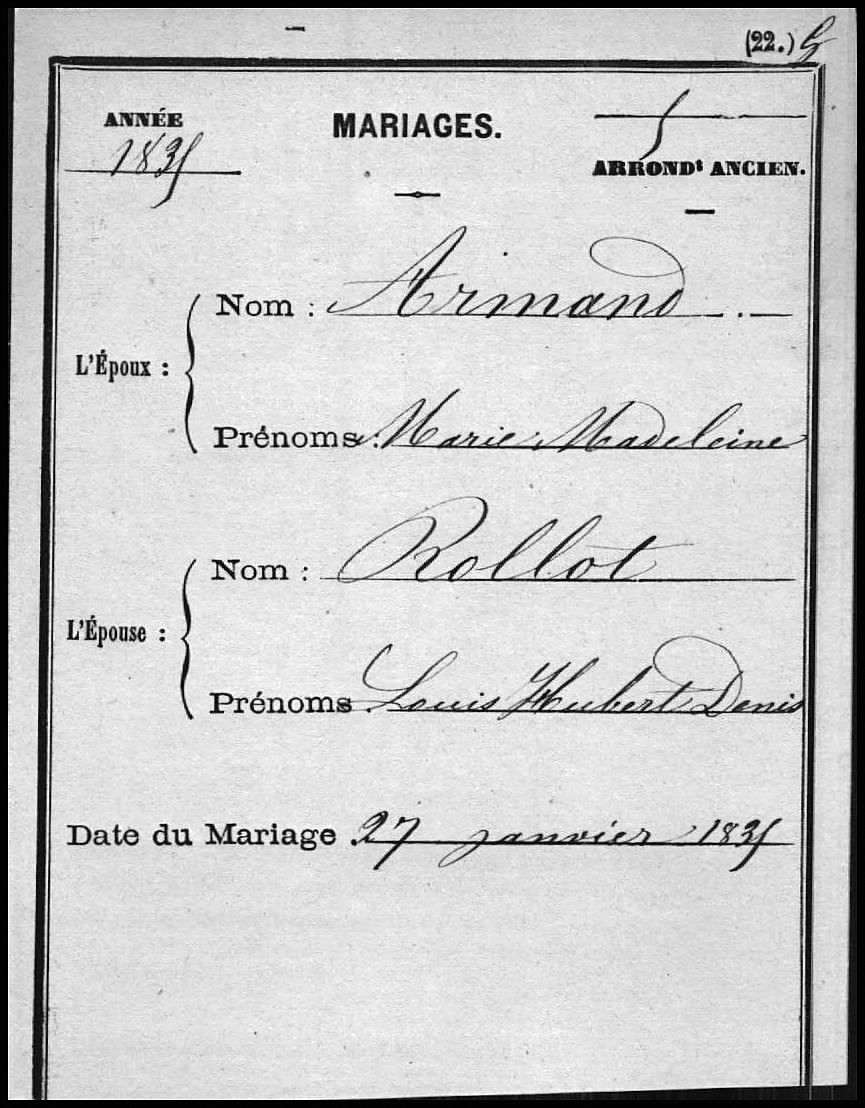 (22.)
ANNÉE
1835
MARIAGES.
5
ARRONDt ANCIEN.
L'Époux :
Nom : Armand
Prénoms : Marie Madeleine
L'Épouse :
Nom : Rollot
Prénoms : Louis Hubert Denis
Date du Mariage : 27 janvier 1835